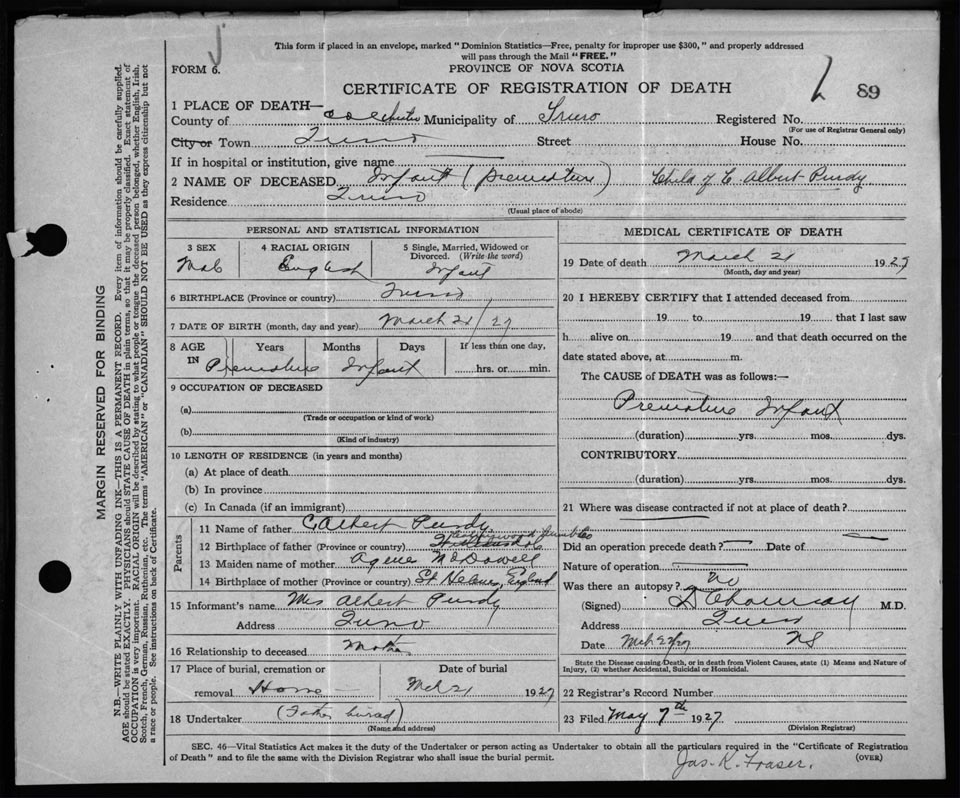 This form if placed in an envelope, marked "Dominion Statistics—Free, penalty for improper use $300," and properly addressed
will pass through the Mail "FREE."
FORM 6.
PROVINCE OF NOVA SCOTIA
CERTIFICATE OF REGISTRATION OF DEATH
89
1 PLACE OF DEATH—
County of Colchester Municipality of Truro Registered No.
(For use of Registrar General only)
City or Town Truro Street House No.
If in hospital or institution, give name
2 NAME OF DECEASED Infant (Premature) Child of C Albert Purdy
Residence Truro
(Usual place of abode)
PERSONAL AND STATISTICAL INFORMATION
3 SEX 4 RACIAL ORIGIN 5 Single, Married, Widowed or
Divorced. (Write the word)
Male English Infant
6 BIRTHPLACE (Province or country) Truro
7 DATE OF BIRTH (month, day and year) March 21/27
8 AGE Years Months Days If less than one day,
IN Premature Infant hrs. or min.
9 OCCUPATION OF DECEASED
(a)
(Trade or occupation or kind of work)
(b)
(Kind of industry)
10 LENGTH OF RESIDENCE (in years and months)
(a) At place of death
(b) In province
(c) In Canada (if an immigrant)
Parents
11 Name of father C Albert Purdy
12 Birthplace of father (Province or country)
13 Maiden name of mother Agnes McDowell
14 Birthplace of mother (Province or country) St Helens, England
15 Informant's name Mrs Albert Purdy
Address Truro
16 Relationship to deceased Mother
17 Place of burial, cremation or Date of burial
removal Home Mch 21 1927
18 Undertaker (Father buried)
(Name and address)
MEDICAL CERTIFICATE OF DEATH
19 Date of death March 21 1927
(Month, day and year)
20 I HEREBY CERTIFY that I attended deceased from
19 to 19 that I last saw
h alive on 19 and that death occurred on the
date stated above, at m.
The CAUSE of DEATH was as follows:—
Premature Infant
(duration) yrs. mos. dys.
CONTRIBUTORY
(duration) yrs. mos. dys.
21 Where was disease contracted if not at place of death?
Did an operation precede death? Date of
Nature of operation
Was there an autopsy? no
(Signed) M.D.
Address Truro NS
Date Mch 22/27
State the Disease causing Death, or in death from Violent Causes, state (1) Means and Nature of
Injury, (2) whether Accidental, Suicidal or Homicidal.
22 Registrar's Record Number
23 Filed May 7th 1927
(Division Registrar)
SEC. 46—Vital Statistics Act makes it the duty of the Undertaker or person acting as Undertaker to obtain all the particulars required in the "Certificate of Registration
of Death" and to file the same with the Division Registrar who shall issue the burial permit.
(OVER)
Jas. K. Fraser.
MARGIN RESERVED FOR BINDING
N.B.—WRITE PLAINLY WITH UNFADING INK—THIS IS A PERMANENT RECORD. Every item of information should be carefully supplied.
AGE should be stated EXACTLY. PHYSICIANS should STATE CAUSE OF DEATH in plain terms, so that it may be properly classified. Exact statement of
OCCUPATION is very important. RACIAL ORIGIN will be described by stating to what people or tongue the deceased person belonged, whether English, Irish,
Scotch, French, German, Russian, Ruthenian, etc. The terms "AMERICAN" or "CANADIAN" SHOULD NOT BE USED as they express citizenship but not
a race or people. See instructions on back of Certificate.